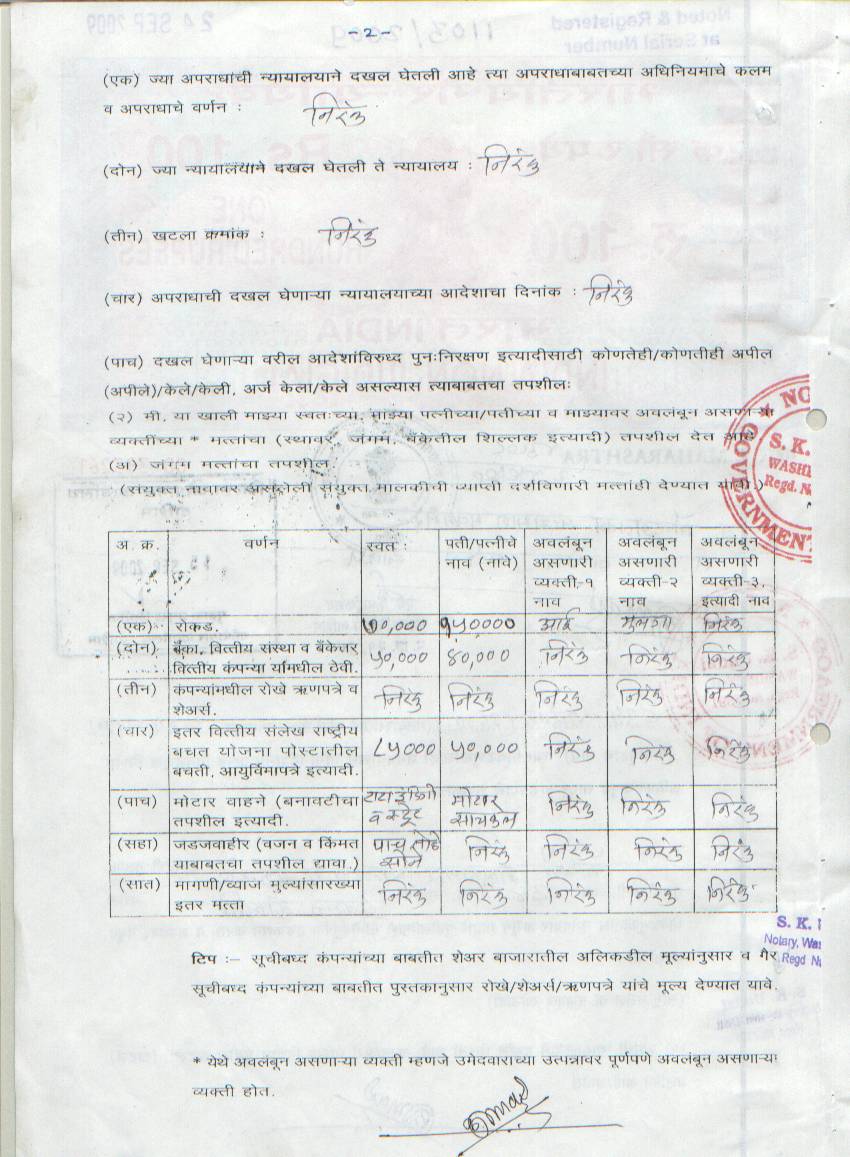 -२-
1103/2009
Noted & Registered
at Serial Number
24 SEP 2009
(एक) ज्या अपराधाची न्यायालयाने दखल घेतली आहे त्या अपराधाबाबतच्या अधिनियमाचे कलम
व अपराधाचे वर्णन : निरंक
(दोन) ज्या न्यायालयाने दखल घेतली ते न्यायालय : निरंक
(तीन) खटला क्रमांक : निरंक
(चार) अपराधाची दखल घेणाऱ्या न्यायालयाच्या आदेशाचा दिनांक : निरंक
(पाच) दखल घेणाऱ्या वरील आदेशांविरुध्द पुनःनिरक्षण इत्यादीसाठी कोणतेही/कोणतीही अपील
(अपीले)/केले/केली, अर्ज केला/केले असल्यास त्याबाबतचा तपशीलः
(२) मी, या खाली माझ्या स्वतःच्या, माझ्या पत्नीच्या/पतीच्या व माझ्यावर अवलंबून असणाऱ्या
व्यक्तींच्या * मत्तांचा (स्थावर, जंगम, बँकेतील शिल्लक इत्यादी) तपशील देत आहे
(अ) जंगम मत्तांचा तपशील.
(संयुक्त नावावर असलेली संयुक्त मालकीची व्याप्ती दर्शविणारी मत्तांही देण्यात यावी.)
अ. क्र. वर्णन स्वत : पती/पत्नीचे नाव (नावे) अवलंबून असणारी व्यक्ती-१ नाव अवलंबून असणारी व्यक्ती-२ नाव अवलंबून असणारी व्यक्ती-३, इत्यादी नाव
(एक) रोकड. ७०,००० १५०००० आई मुलगा निरंक
(दोन) बँका, वित्तीय संस्था व बँकेतर वित्तीय कंपन्या यांमधील ठेवी. ५०,००० ४०,००० निरंक निरंक निरंक
(तीन) कंपन्यांमधील रोखे ऋणपत्रे व शेअर्स. निरंक निरंक निरंक निरंक निरंक
(चार) इतर वित्तीय संलेख राष्ट्रीय बचत योजना पोस्टातील बचती, आयुर्विमापत्रे इत्यादी. ८५००० ५०,००० निरंक निरंक निरंक
(पाच) मोटार वाहने (बनावटीचा तपशील इत्यादी. टाटा इंडिगो व मोटार सायकल निरंक निरंक निरंक
(सहा) जडजवाहीर (वजन व किंमत याबाबतचा तपशील द्यावा.) पाच तोळे सोने निरंक निरंक निरंक निरंक
(सात) मागणी/व्याज मुल्यांसारख्या इतर मत्ता निरंक निरंक निरंक निरंक निरंक
S. K.
WASHI
Regd. N
GOVERNMENT
S. K.
Notary, Wa
Regd N
टिप :– सूचीबध्द कंपन्यांच्या बाबतीत शेअर बाजारातील अलिकडील मूल्यांनुसार व गैर
सूचीबध्द कंपन्यांच्या बाबतीत पुस्तकानुसार रोखे/शेअर्स/ऋणपत्रे यांचे मूल्य देण्यात यावे.
* येथे अवलंबून असणाऱ्या व्यक्ती म्हणजे उमेदवाराच्या उत्पन्नावर पूर्णपणे अवलंबून असणाऱ्या
व्यक्ती होत.